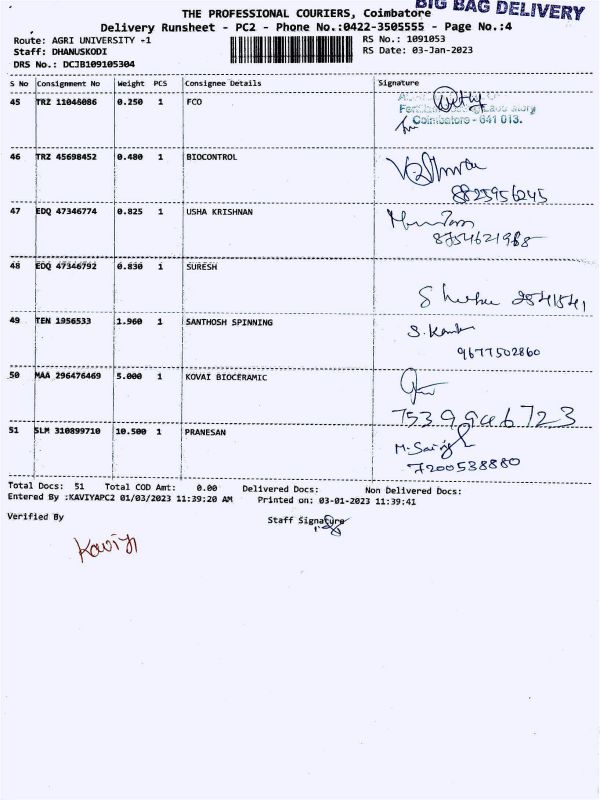 BIG BAG DELIVERY
THE PROFESSIONAL COURIERS, Coimbatore
Delivery Runsheet - PC2 - Phone No.:0422-3505555 - Page No.:4
Route: AGRI UNIVERSITY -1 RS No.: 1091053
Staff: DHANUSKODI RS Date: 03-Jan-2023
DRS No.: DCJB109105304
S No Consignment No Weight PCS Consignee Details Signature
45 TRZ 11046086 0.250 1 FCO
Coimbatore - 641 013.
46 TRZ 45698452 0.480 1 BIOCONTROL
8825956245
47 EDQ 47346774 0.825 1 USHA KRISHNAN
8754621968
48 EDQ 47346792 0.830 1 SURESH
2541541
49 TEN 1956533 1.960 1 SANTHOSH SPINNING
9677502860
50 MAA 296476469 5.000 1 KOVAI BIOCERAMIC
51 SLM 310899710 10.500 1 PRANESAN
7200538880
Total Docs: 51 Total COD Amt: 0.00 Delivered Docs: Non Delivered Docs:
Entered By :KAVIYAPC2 01/03/2023 11:39:20 AM Printed on: 03-01-2023 11:39:41
Verified By Staff Signature